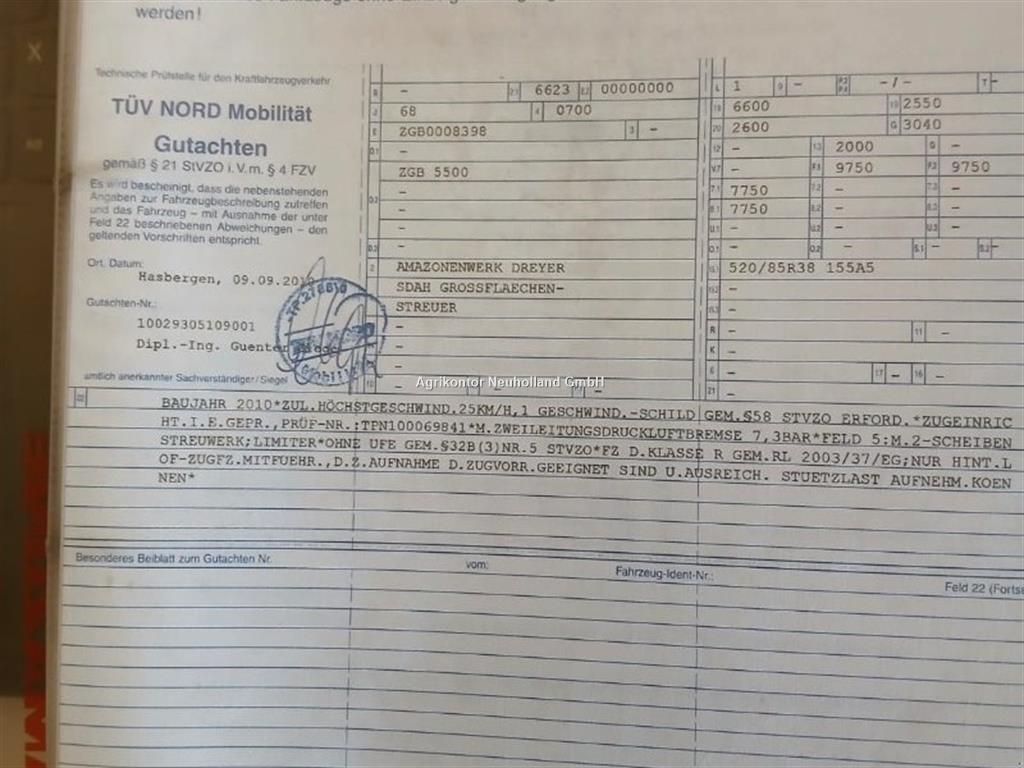 werden!
Technische Prüfstelle für den Kraftfahrzeugverkehr
TÜV NORD Mobilität
Gutachten
gemäß § 21 StVZO i.V.m. § 4 FZV
Es wird bescheinigt, dass die nebenstehenden
Angaben zur Fahrzeugbeschreibung zutreffen
und das Fahrzeug – mit Ausnahme der unter
Feld 22 beschriebenen Abweichungen – den
geltenden Vorschriften entspricht.
Ort, Datum:
Hasbergen, 09.09.
Gutachten-Nr.:
10029305109001
Dipl.-Ing. Guenter
amtlich anerkannter Sachverständiger/Siegel
B - 2.1 6623 2.2 00000000
J 68 4 0700
E ZGB0008398 3 -
D.1 -
ZGB 5500
-
D.2 -
-
D.3 -
2 AMAZONENWERK DREYER
5 SDAH GROSSFLAECHEN-
STREUER
-
-
-
-
L 1 9 - P.2 P.4 - / - T -
18 6600 19 2550
20 2600 G 3040
12 - 13 2000 Q -
V.7 - F.1 9750 F.2 9750
7.1 7750 7.2 - 7.3 -
8.1 7750 8.2 - 8.3 -
U.1 - U.2 - U.3 -
O.1 - O.2 - S.1 - S.2 -
15.1 520/85R38 155A5
15.2 -
15.3 -
R - 11 -
K -
6 - 17 - 16 -
21 -
Agrikontor Neuholland GmbH
22 BAUJAHR 2010*ZUL.HÖCHSTGESCHWIND.25KM/H,1 GESCHWIND.-SCHILD GEM.§58 STVZO ERFORD.*ZUGEINRIC
HT.I.E.GEPR.,PRÜF-NR.:TPN100069841*M.ZWEILEITUNGSDRUCKLUFTBREMSE 7,3BAR*FELD 5:M.2-SCHEIBEN
STREUWERK;LIMITER*OHNE UFE GEM.§32B(3)NR.5 STVZO*FZ D.KLASSE R GEM.RL 2003/37/EG;NUR HINT.L
OF-ZUGFZ.MITFUEHR.,D.Z.AUFNAHME D.ZUGVORR.GEEIGNET SIND U.AUSREICH. STUETZLAST AUFNEHM.KOEN
NEN*
Besonderes Beiblatt zum Gutachten Nr. vom: Fahrzeug-Ident-Nr.:
Feld 22 (Forts